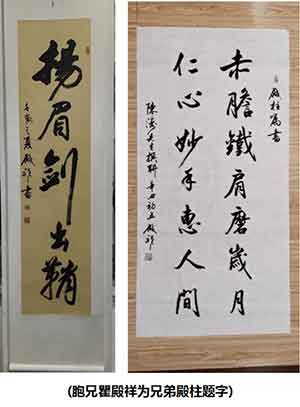 揚眉劍出鞘
之夏 殿祥書
殿柱 書
赤膽鐵肩磨歲月
仁心妙手惠人間
先生撰聯 辛丑初五 殿祥
(胞兄瞿殿祥为兄弟殿柱题字)